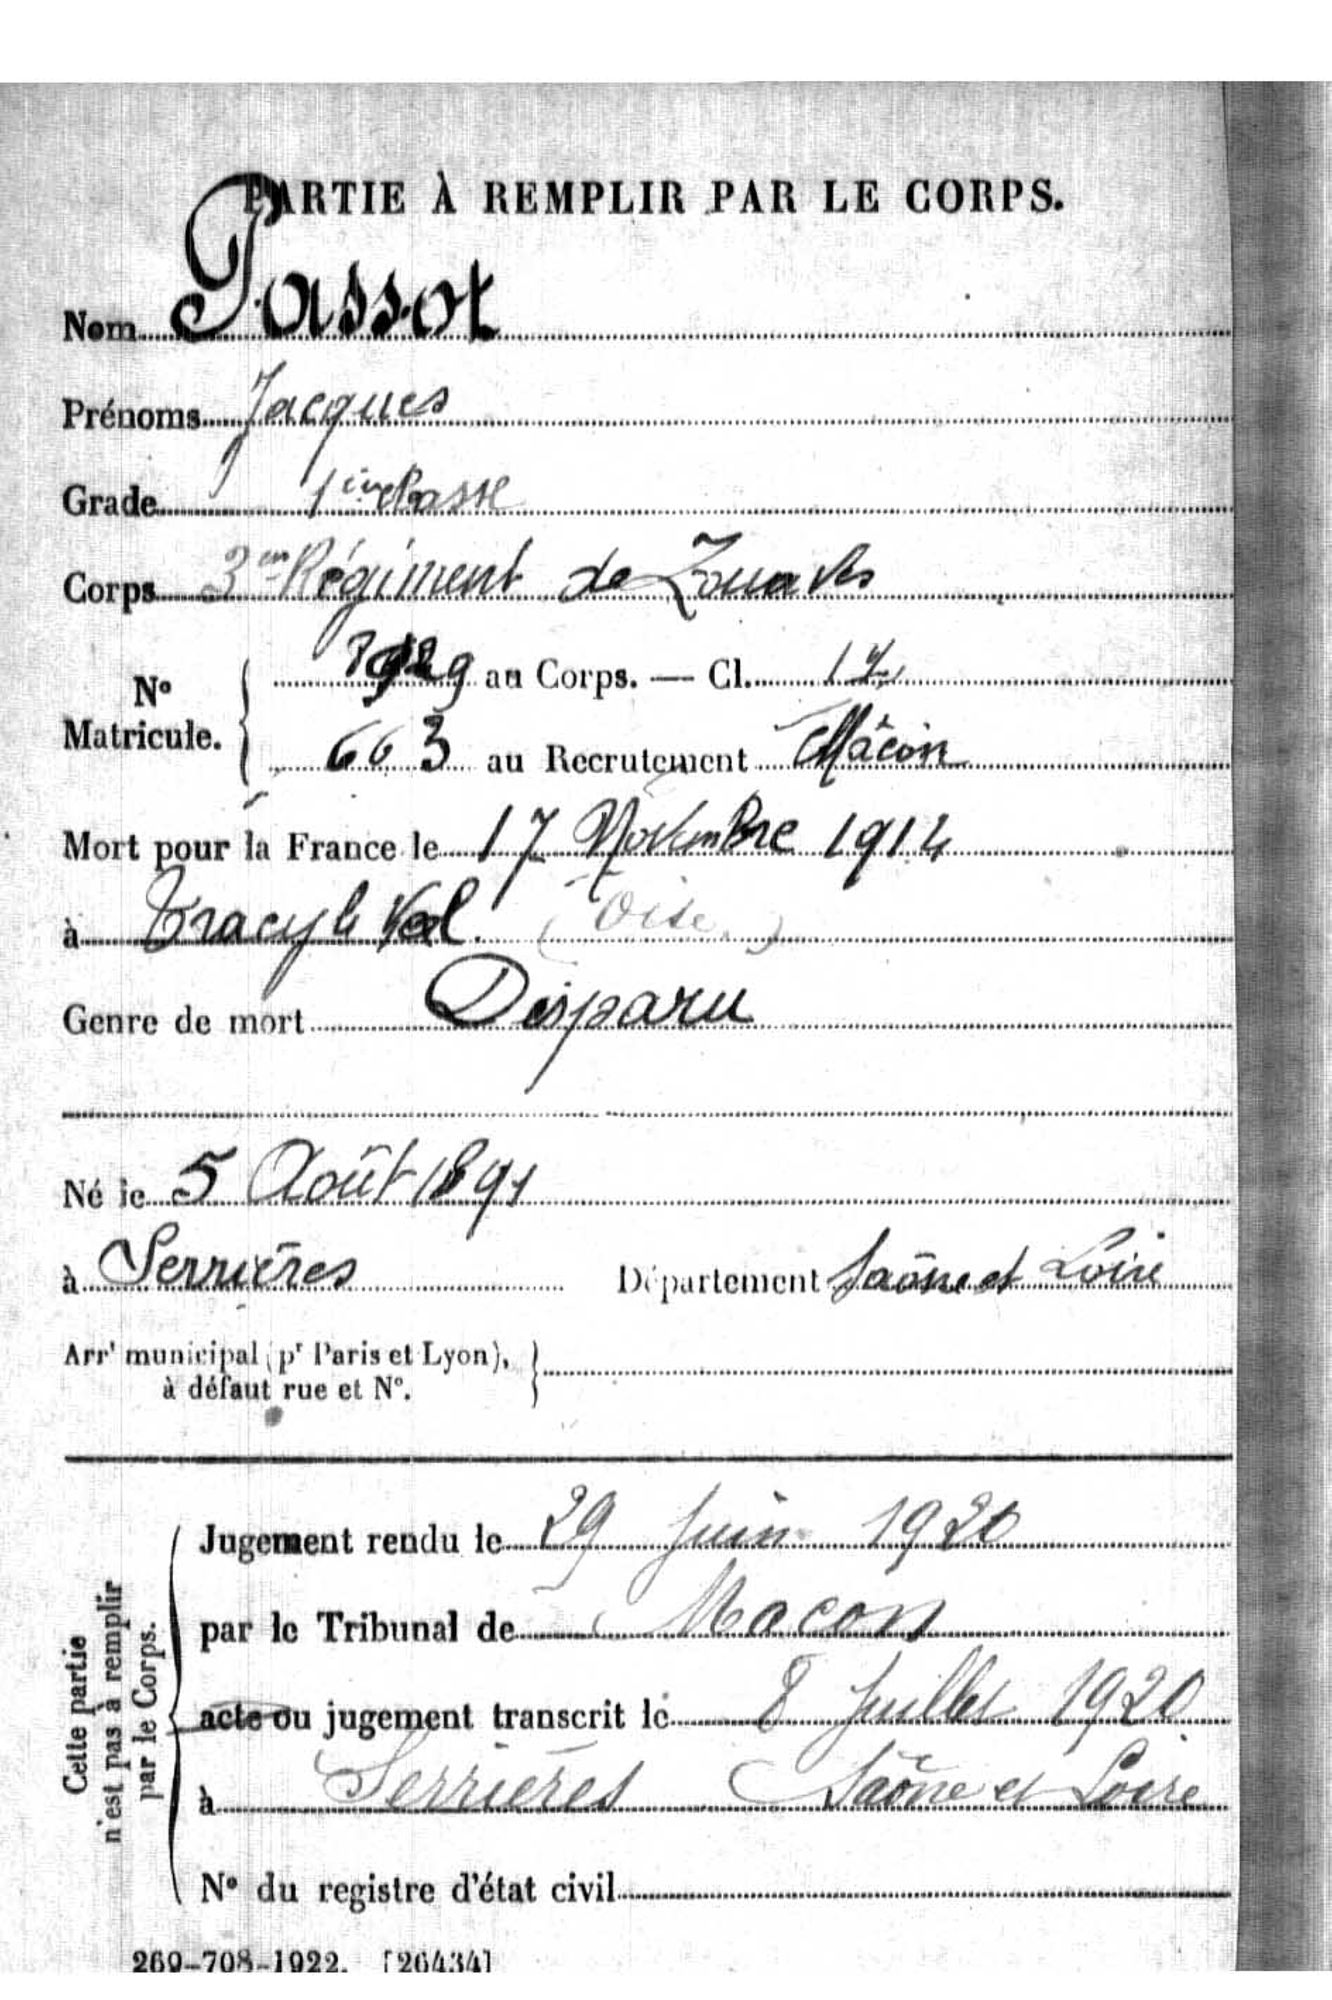 PARTIE À REMPLIR PAR LE CORPS.
Nom Passot
Prénoms Jacques
Grade 1ière classe
Corps 3me Régiment de Zouaves
No Matricule. au Corps. — Cl.
663 au Recrutement Mâcon
Mort pour la France le 17 Novembre 1914
à Tracy le Val. (Oise)
Genre de mort Disparu
Né le 5 Août 1891
à Serrières Département Saône et Loire
Arrt municipal (pr Paris et Lyon),
à défaut rue et No.
Cette partie
n'est pas à remplir
par le Corps.
Jugement rendu le 29 Juin 1920
par le Tribunal de Macon
acte ou jugement transcrit le 8 Juillet 1920
à Serrières Saône et Loire
No du registre d'état civil
269-708-1922. [26434]